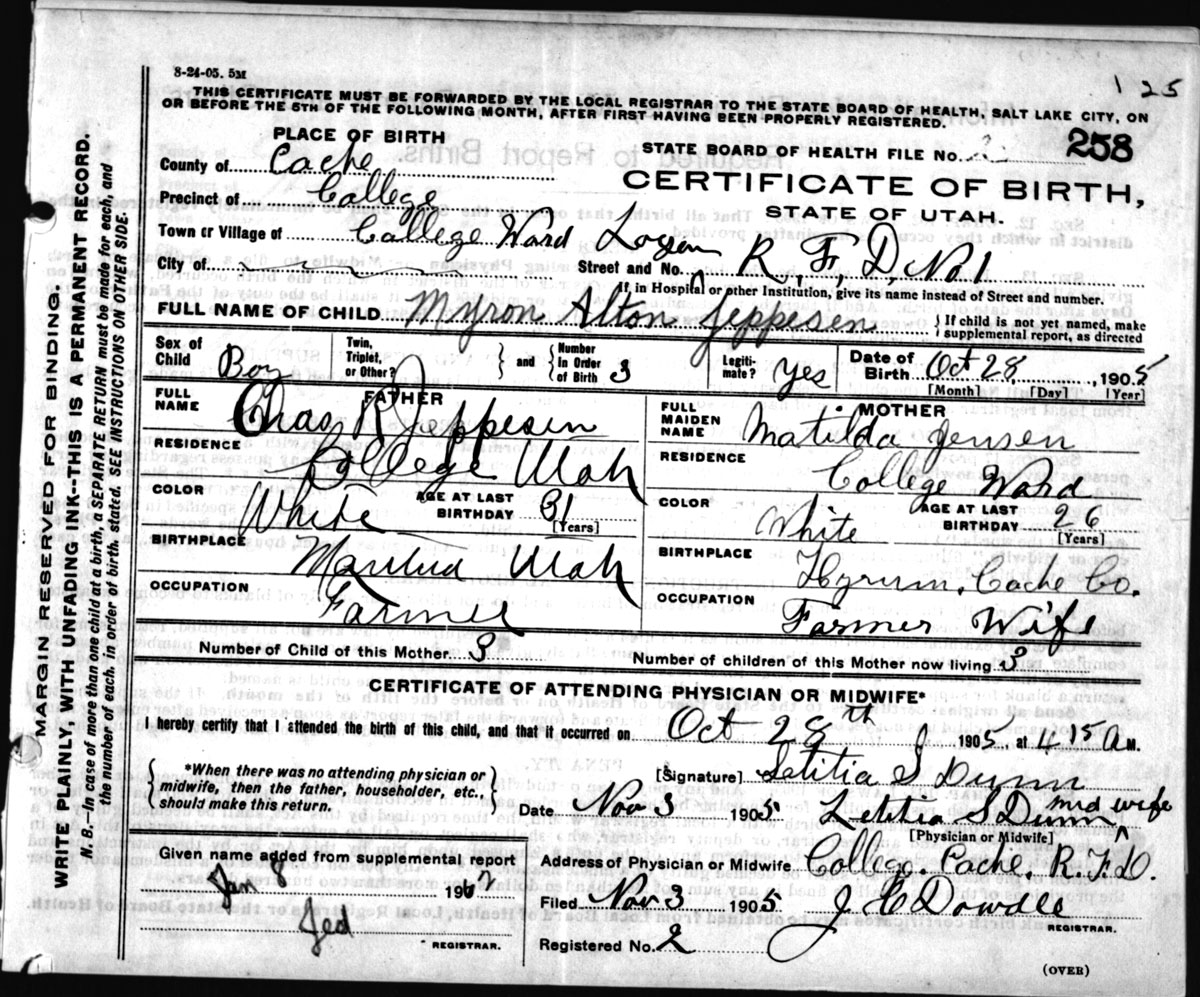 8-24-05. 5M
1 25
THIS CERTIFICATE MUST BE FORWARDED BY THE LOCAL REGISTRAR TO THE STATE BOARD OF HEALTH, SALT LAKE CITY, ON
OR BEFORE THE 5TH OF THE FOLLOWING MONTH, AFTER FIRST HAVING BEEN PROPERLY REGISTERED.
PLACE OF BIRTH
STATE BOARD OF HEALTH FILE No. 258
County of Cache
CERTIFICATE OF BIRTH,
Precinct of College
STATE OF UTAH.
Town or Village of College Ward Logan
City of
Street and No. R. F. D. No. 1
If in Hospital or other Institution, give its name instead of Street and number.
FULL NAME OF CHILD Myron Alton Jeppesen } If child is not yet named, make supplemental report, as directed
Sex of Child Boy Twin, Triplet, or Other? } and { Number In Order of Birth 3 Legitimate? Yes Date of Birth Oct 28, 1905
[Month] [Day] [Year]
FATHER
FULL NAME Chas R Jeppesen
RESIDENCE College Utah
COLOR White AGE AT LAST BIRTHDAY 31
[Years]
BIRTHPLACE Mantua Utah
OCCUPATION Farmer
MOTHER
FULL MAIDEN NAME Matilda Jensen
RESIDENCE College Ward
COLOR White AGE AT LAST BIRTHDAY 26
[Years]
BIRTHPLACE Hyrum, Cache Co.
OCCUPATION Farmer Wife
Number of Child of this Mother 3
Number of children of this Mother now living 3
CERTIFICATE OF ATTENDING PHYSICIAN OR MIDWIFE*
I hereby certify that I attended the birth of this child, and that it occurred on Oct 28th 1905, at 4 15 A M.
{ *When there was no attending physician or
midwife, then the father, householder, etc.,
should make this return. }
[Signature] Letitia S Dunn
Date Nov 3 1905 Letitia S Dunn mid wife
[Physician or Midwife]
Given name added from supplemental report
Jan 8 1907
Jed
REGISTRAR.
Address of Physician or Midwife College, Cache, R. F. D.
Filed Nov 3 1905 J H Dowdle
REGISTRAR.
Registered No. 2
(OVER)
MARGIN RESERVED FOR BINDING
WRITE PLAINLY, WITH UNFADING INK--THIS IS A PERMANENT RECORD.
N. B.—In case of more than one child at a birth, a SEPARATE RETURN must be made for each, and
the number of each, in order of birth, stated. SEE INSTRUCTIONS ON OTHER SIDE.